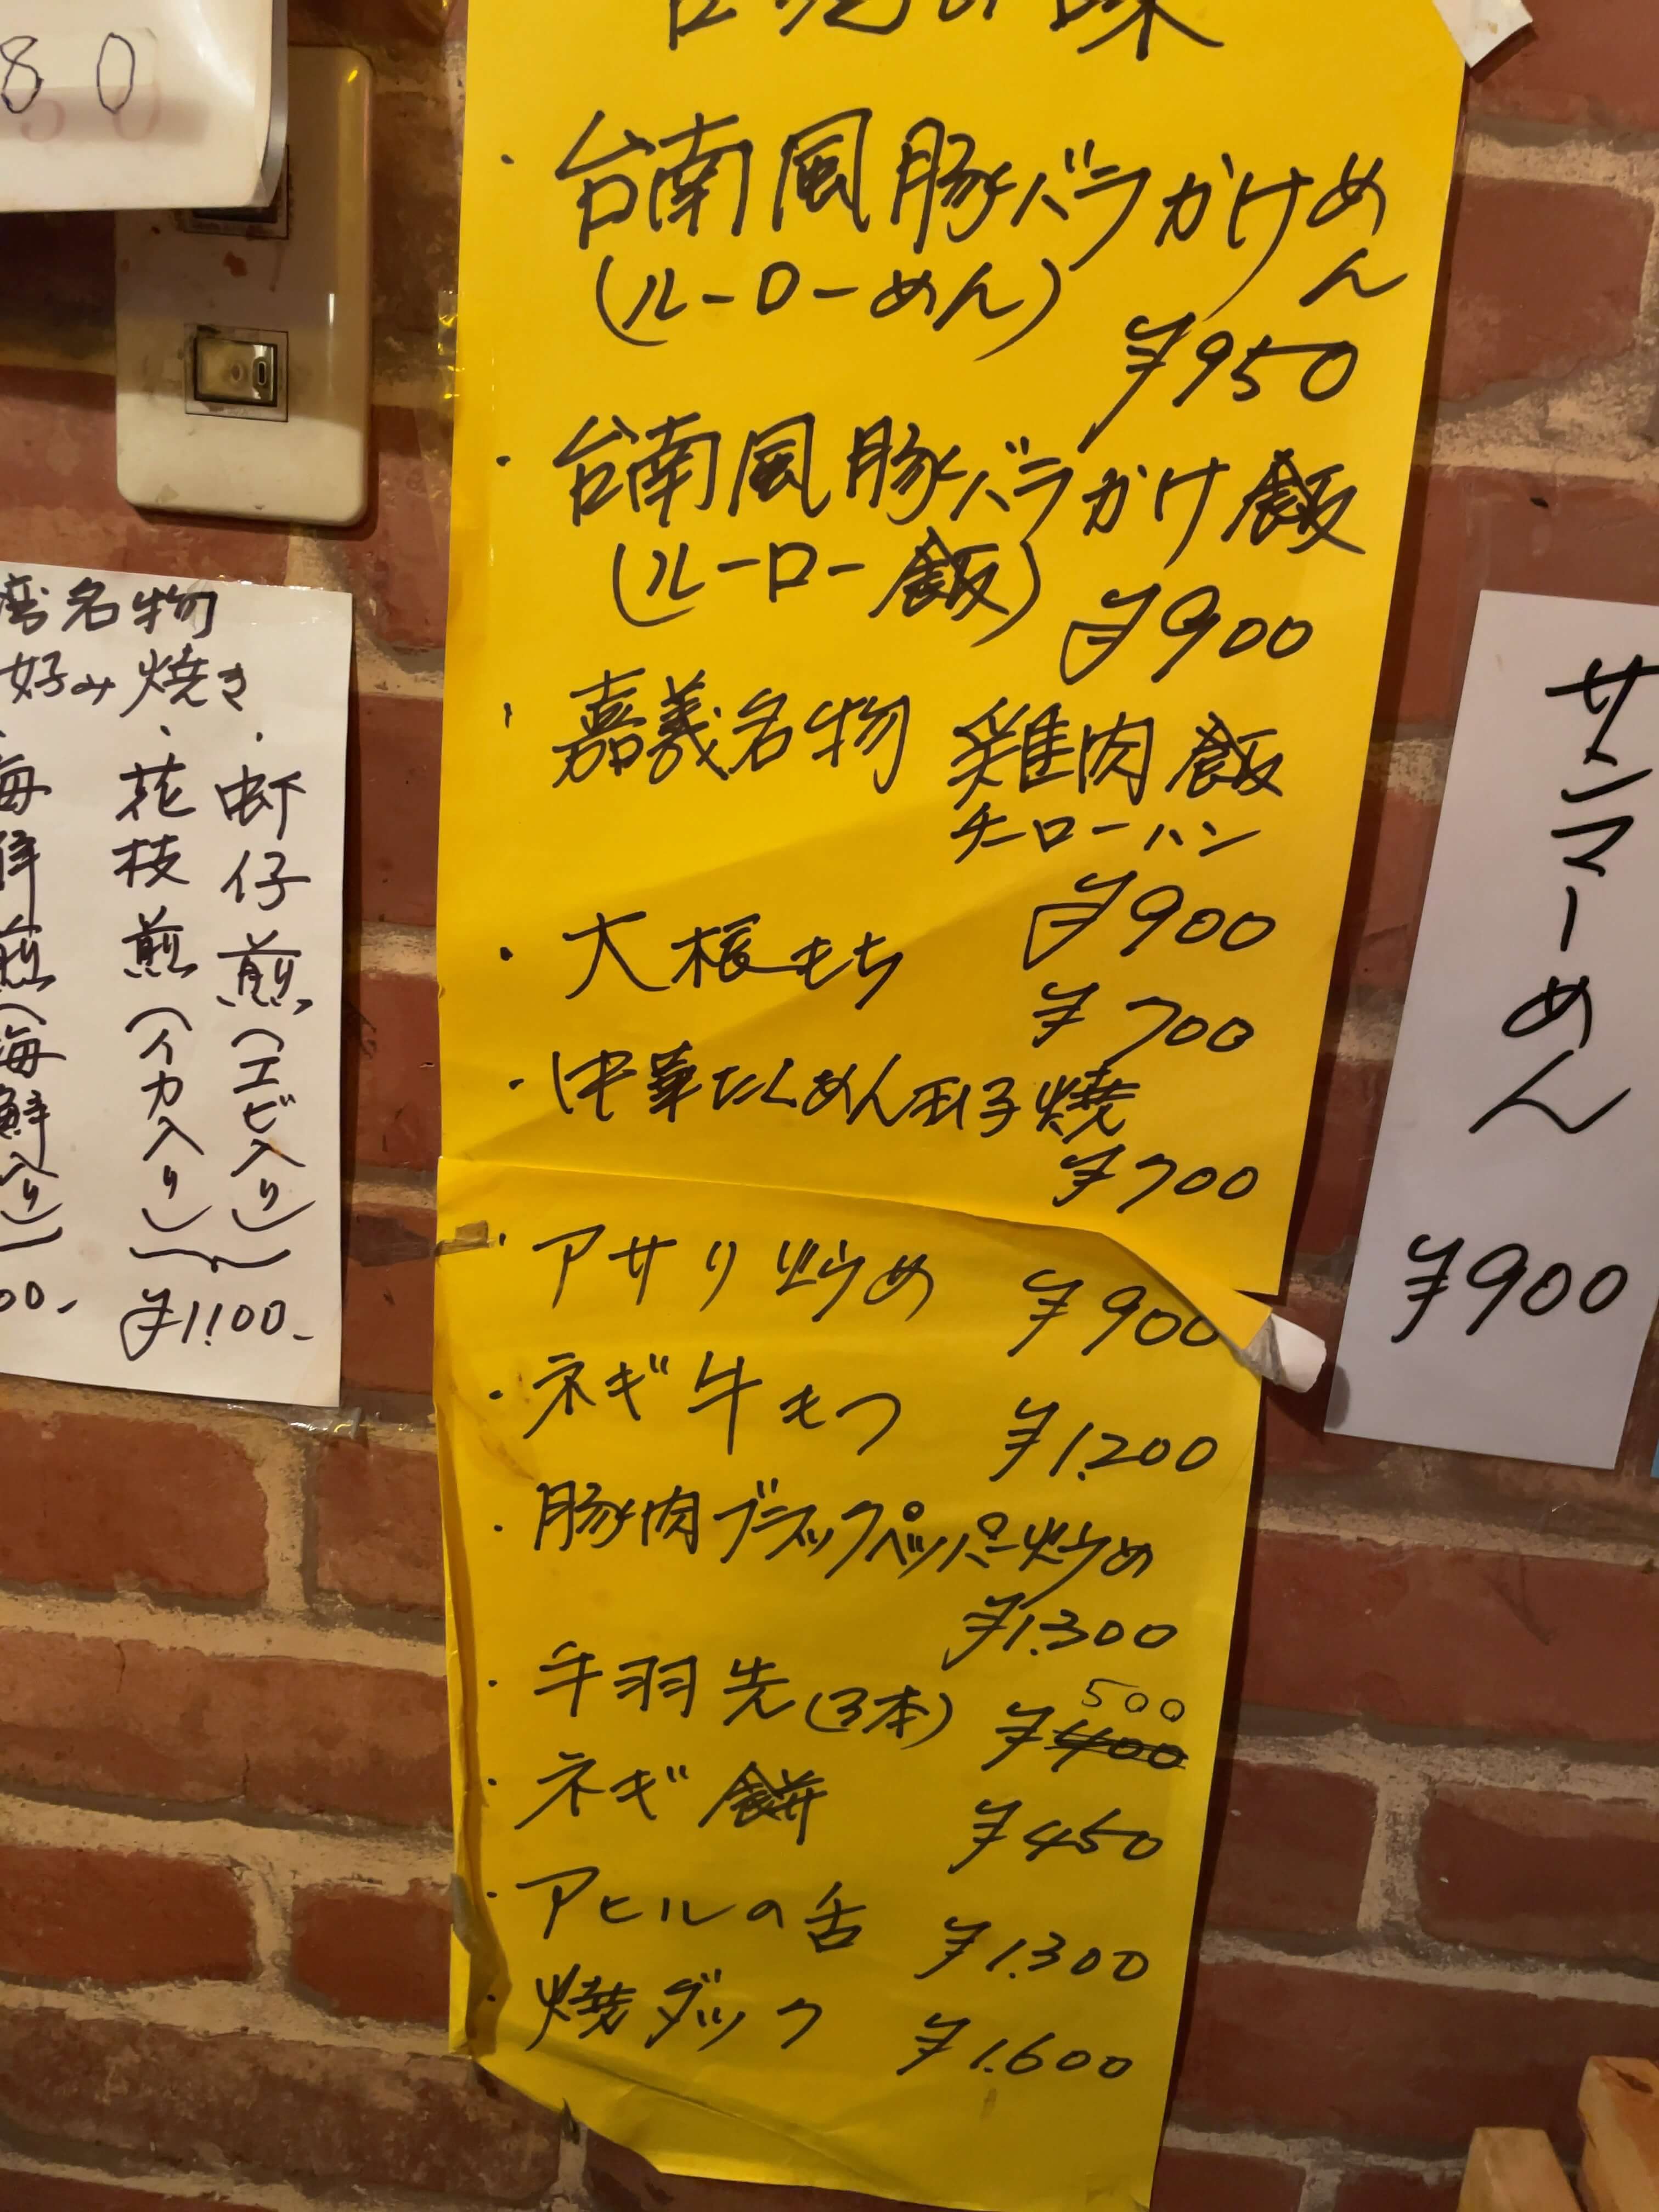 80
台湾の味
・台南風豚バラかけめん
(ルーローめん)
¥950
・台南風豚バラかけ飯
(ルーロー飯)
¥900
・嘉義名物 雞肉飯
チーローハン
¥900
・大根もち
¥700
・中華たくあん玉子焼
¥700
・アサリ炒め ¥900
・ネギ牛もつ ¥1.200
・豚肉ブラックペッパー炒め
¥1.300
・手羽先(3本) ¥400 500
・ネギ餅 ¥450
・アヒルの舌 ¥1.300
・焼ダック ¥1.600
湾名物
好み焼き
・蚵仔煎(エビ入り)
・花枝煎(イカ入り)
海鮮煎(海鮮入り)
¥1.100-
00-
サンマーめん
¥900